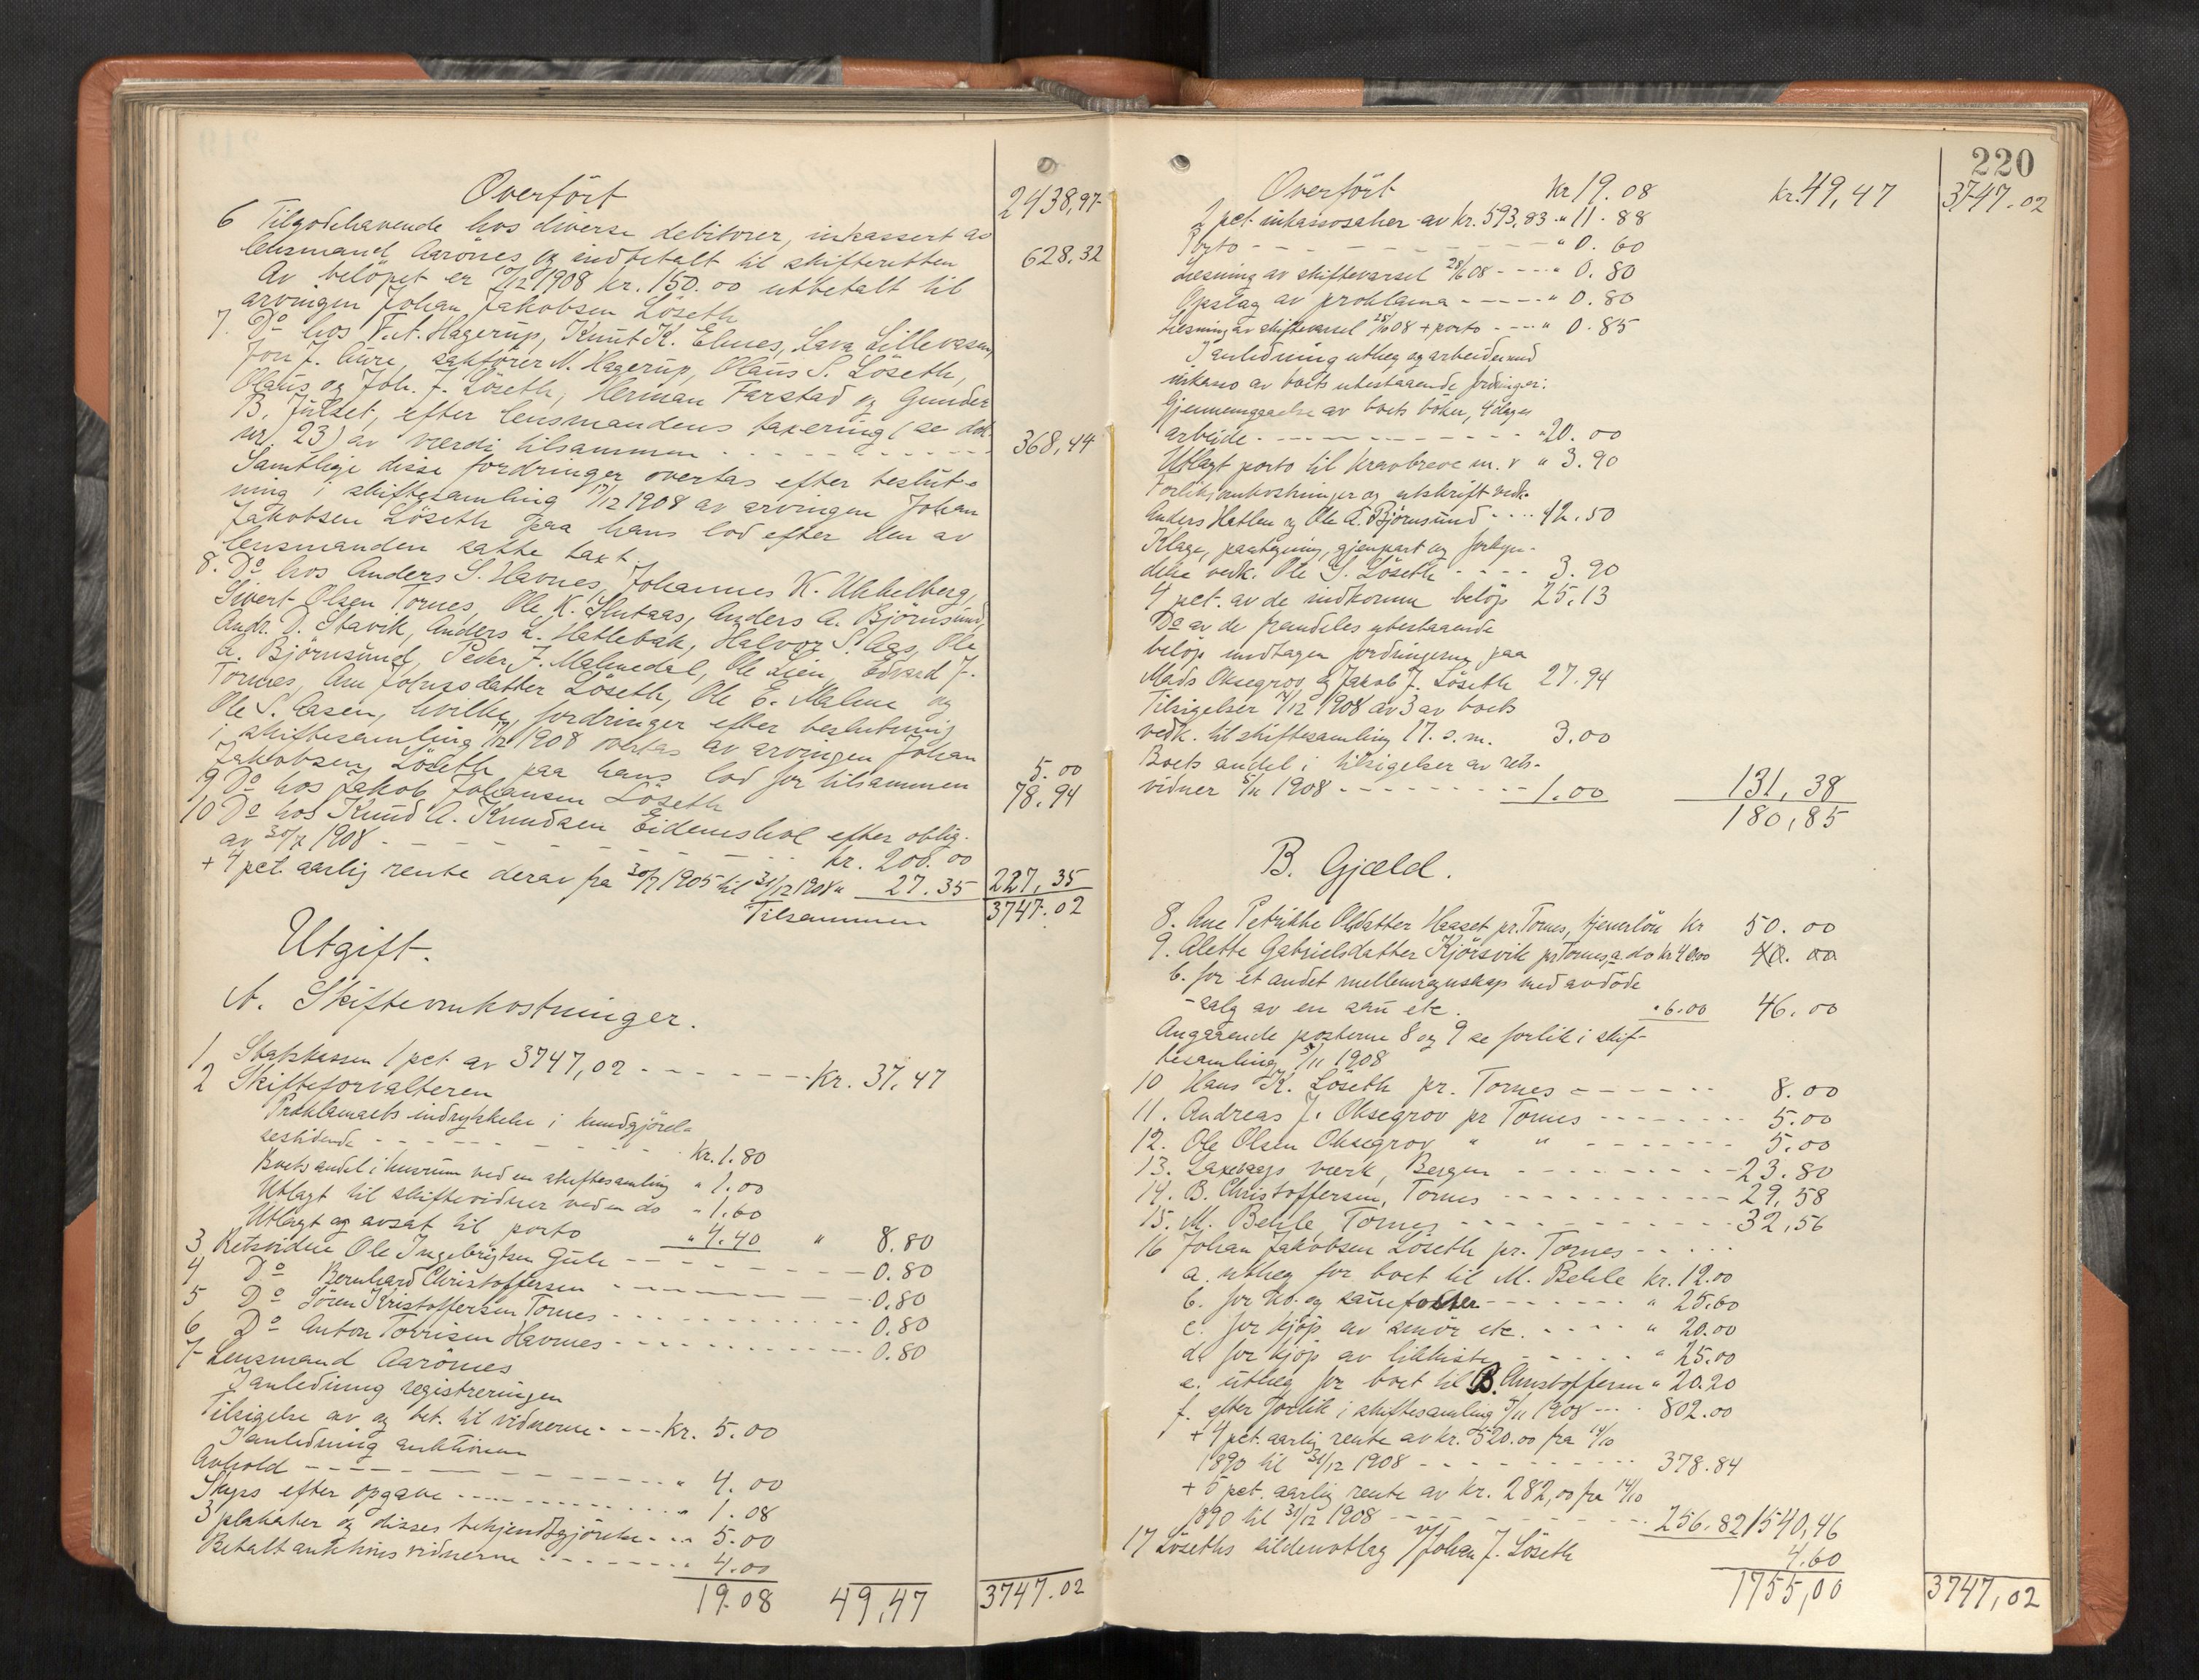 Overført 2438,97
6 Tilgodehavende hos diverse debitorer, inkassert av
lensmand Aarönes og indbetalt til skifteretten 628.32
Av belöpet er 10/12 1908 kr. 150.00 utbetalt til
arvingen Johan Jakobsen Löseth
7. Do hos F. A. Hagerup, Knut K. Elnes, Lava Lillevasen,
Jon J. Hüre, sakförer M. Hagerup, Olaus S. Löseth,
Olaus og Joh. J. Löseth, Herman Farstad og Gunder
B. Julset, efter lensmandens taxering (se dok.
nr. 23) av værdi tilsammen - - - - - 368,44
Samtlige disse fordringer overtas efter beslut-
ning i skiftesamling 17/12 1908 av arvingen Johan
Jakobsen Löseth paa hans lod efter den av
lensmanden satte taxt.
8. Do hos Anders S. Havnes, Johannes K. Ukkelberg,
Sivert Olsen Tornes, Ole K. Slutaas, Anders A. Björnsund,
Andr. D. Stavik, Anders A. Hatlebak, Halvor S. Aas, Ole
A. Björnsund, Peder J. Malmedal, Ole Lien, Edvard J.
Tornes, Ane Johnsdatter Löseth, Ole E. Malme og
Ole S. Aasen, hvilke fordringer efter beslutning
i skiftesamling 17/12 1908 overtas av arvingen Johan
Jakobsen Löseth paa hans lod for tilsammen 5.00
9 Do hos Jakob Johansen Löseth 78.94
10 Do hos Knud A. Knudsen Eidemshol efter oblig.
av 30/7 1908 - - - - - kr. 200.00
+ 4 pct. aarlig rente derav fra 30/7 1905 til 31/12 1908 " 27.35 227,35
Tilsammen 3747.02
Utgift.
A. Skifteomkostninger.
1 Statskassen 1 pct av 3747,02 - - - - - Kr. 37.47
2 Skifteforvalteren
Proklamaets indrykkelse i kundgjörel-
sestidende - - - - - Kr. 1.80
Boets andel i husrum ved en skiftesamling " 1.00
Utlagt til skiftevidner ved en do " 1.60
Utlagt og avsat til porto " 4.40 " 8.80
3 Retsvidne Ole Ingebrigtsen Gule - - - - 0.80
4 Do Bernhard Christoffersen - - - - 0.80
5 Do Sören Kristoffersen Tornes - - - - 0.80
6 Do Anton Torrisen Havnes - - - - 0.80
7 Lensmand Aarönes
I anledning registreringen
Tilsigelse av og bet. til vidnerne - - - Kr. 5.00
I anledning auktionen
Avhold - - - - - " 4.00
Skyss efter opgave - - - - - " 1.08
3 plakater og disses bekjendtgjörelse - - " 5.00
Betalt auktions vidnerne - - - - " 4.00
19.08 49,47 3747.02
220
Overført Kr 19.08 kr. 49,47 3747.02
2 pct. inkassosaker av kr. 593,83 " 11.88
Porto - - - - - " 0.60
Læsning av skiftevarsel 28/6 08 - - - " 0.80
Opslag av proklama - - - - " 0.80
Læsning av skiftevarsel 28/10 08 + porto - - - " 0.85
I anledning utlæg og arbeide med
inkasso av boets utestaaende fordringer:
Gjennemgaaelse av boets böker, 4 dages
arbeide - - - - - " 20.00
Utlagt porto til kravbreve m. v " 3.90
Forliksomkostninger og utskrift vedk.
Anders Hatlen og Ole A. Björnsund - - - 42.50
Klage, paategning, gjenpart og forkyn-
delse vedk. Ole S. Löseth - - - - 3.90
4 pct. av de indkomne belöp 25.13
Do av de fremdeles utestaaende
belöp undtagen fordringerne paa
Mads Oksegrov og Jakob J. Löseth 27.94
Tilsigelser 14/12 1908 av 3 av boets
vedk. til skiftesamling 17. s. m. 3.00
Boets andel i tilsigelser av rets-
vidner 5/11 1908 - - - - - 1.00 131,38
180,85
B. Gjæld.
8. Ane Petrikke Olsdatter Haaset pr. Tornes, tjenerlön Kr 50.00
9. Alette Gabrielsdatter Kjörsvik pr Tornes, a. do kr 40.00 40.00
b. for et andet mellemregnskap med avdöde
- salg av en sau etc. " 6.00 46.00
Angaaende posterne 8 og 9 se forlik i skif-
tesamling 5/11 1908
10 Hans K. Löseth pr. Tornes - - - - - 8.00
11. Andreas J. Oksegrov pr Tornes - - - - - 5.00
12. Ole Olsen Oksegrov " " - - - - - 5.00
13. Laxevaags værk, Bergen - - - - - 23.80
14. B. Christoffersen, Tornes - - - - - 29,58
15. M. Behle, Tornes - - - - - 32,56
16 Johan Jakobsen Löseth pr. Tornes - - - - -
a. utlæg for boet til M. Behle kr. 12.00
b. for ko- og sauefoster - - - - - " 25.60
c. for kjöp av smör etc. - - - - " 20.00
d. for kjöp av likkiste - - - - " 25.00
e. utlæg for boet til B. Christoffersen " 20.20
f. efter forlik i skiftesamling 5/11 1908 - - - 802.00
+ 4 pct. aarlig rente av kr. 520.00 fra 14/10
1890 til 31/12 1908 - - - - - 378.84
+ 5 pct. aarlig rente av kr. 282,00 fra 14/10
1890 til 31/12 1908 - - - - - 256.82 1540,46
17 Löseths sildenotlag v/ Johan J. Löseth 4.60
1755,00 3747,02